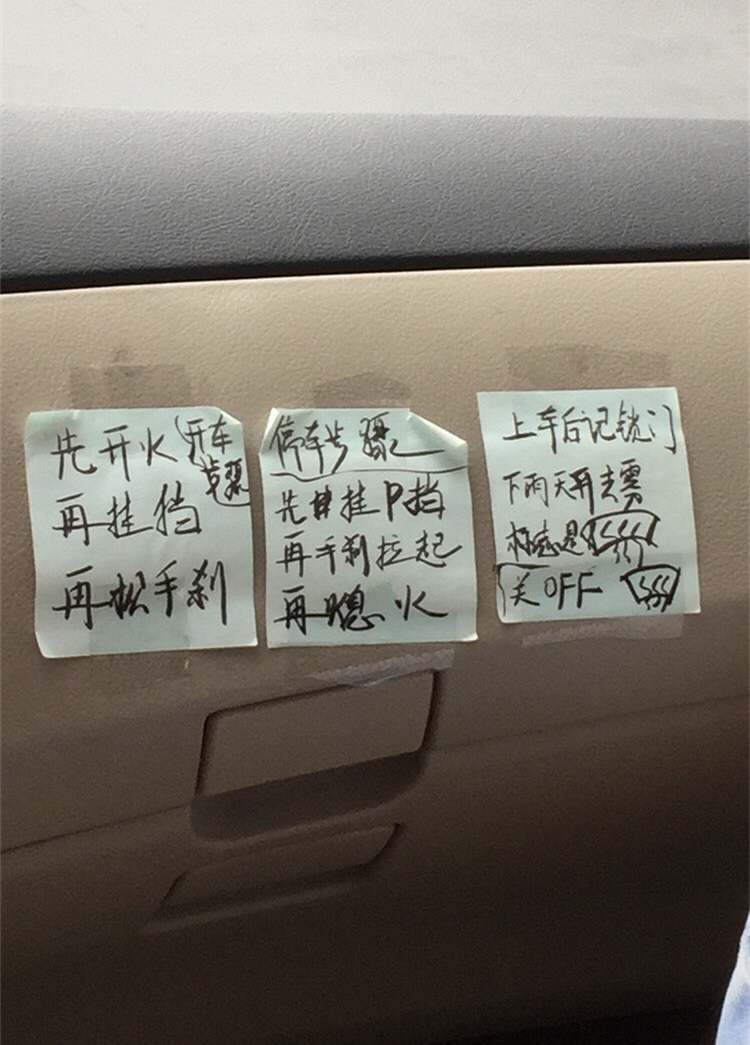 先开火 开车
步骤
再挂挡
再松手刹
停车步骤
先挂P挡
再手刹拉起
再熄火
上车后记锁门
下雨天开去雾
标志是
关OFF